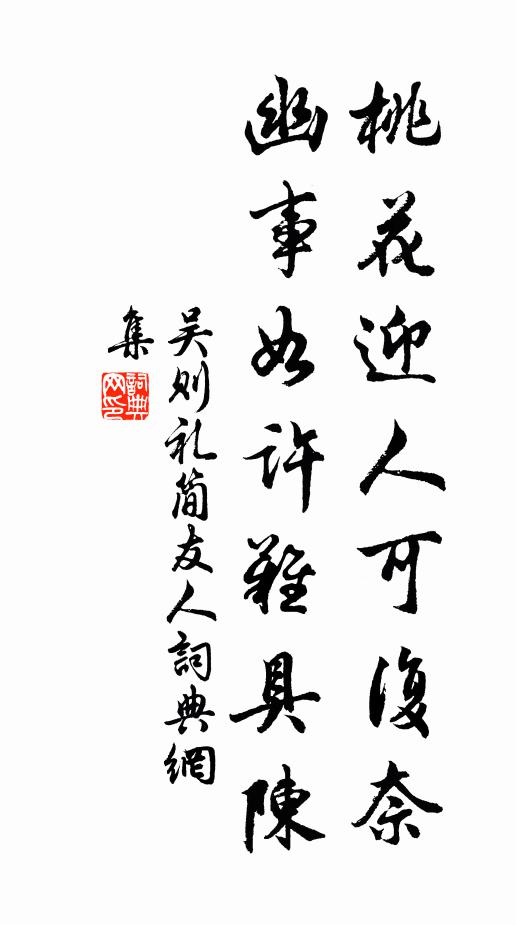 桃花迎人可復奈
幽事如許難具陳
吴则礼简友人詞典網
集
詞典網印